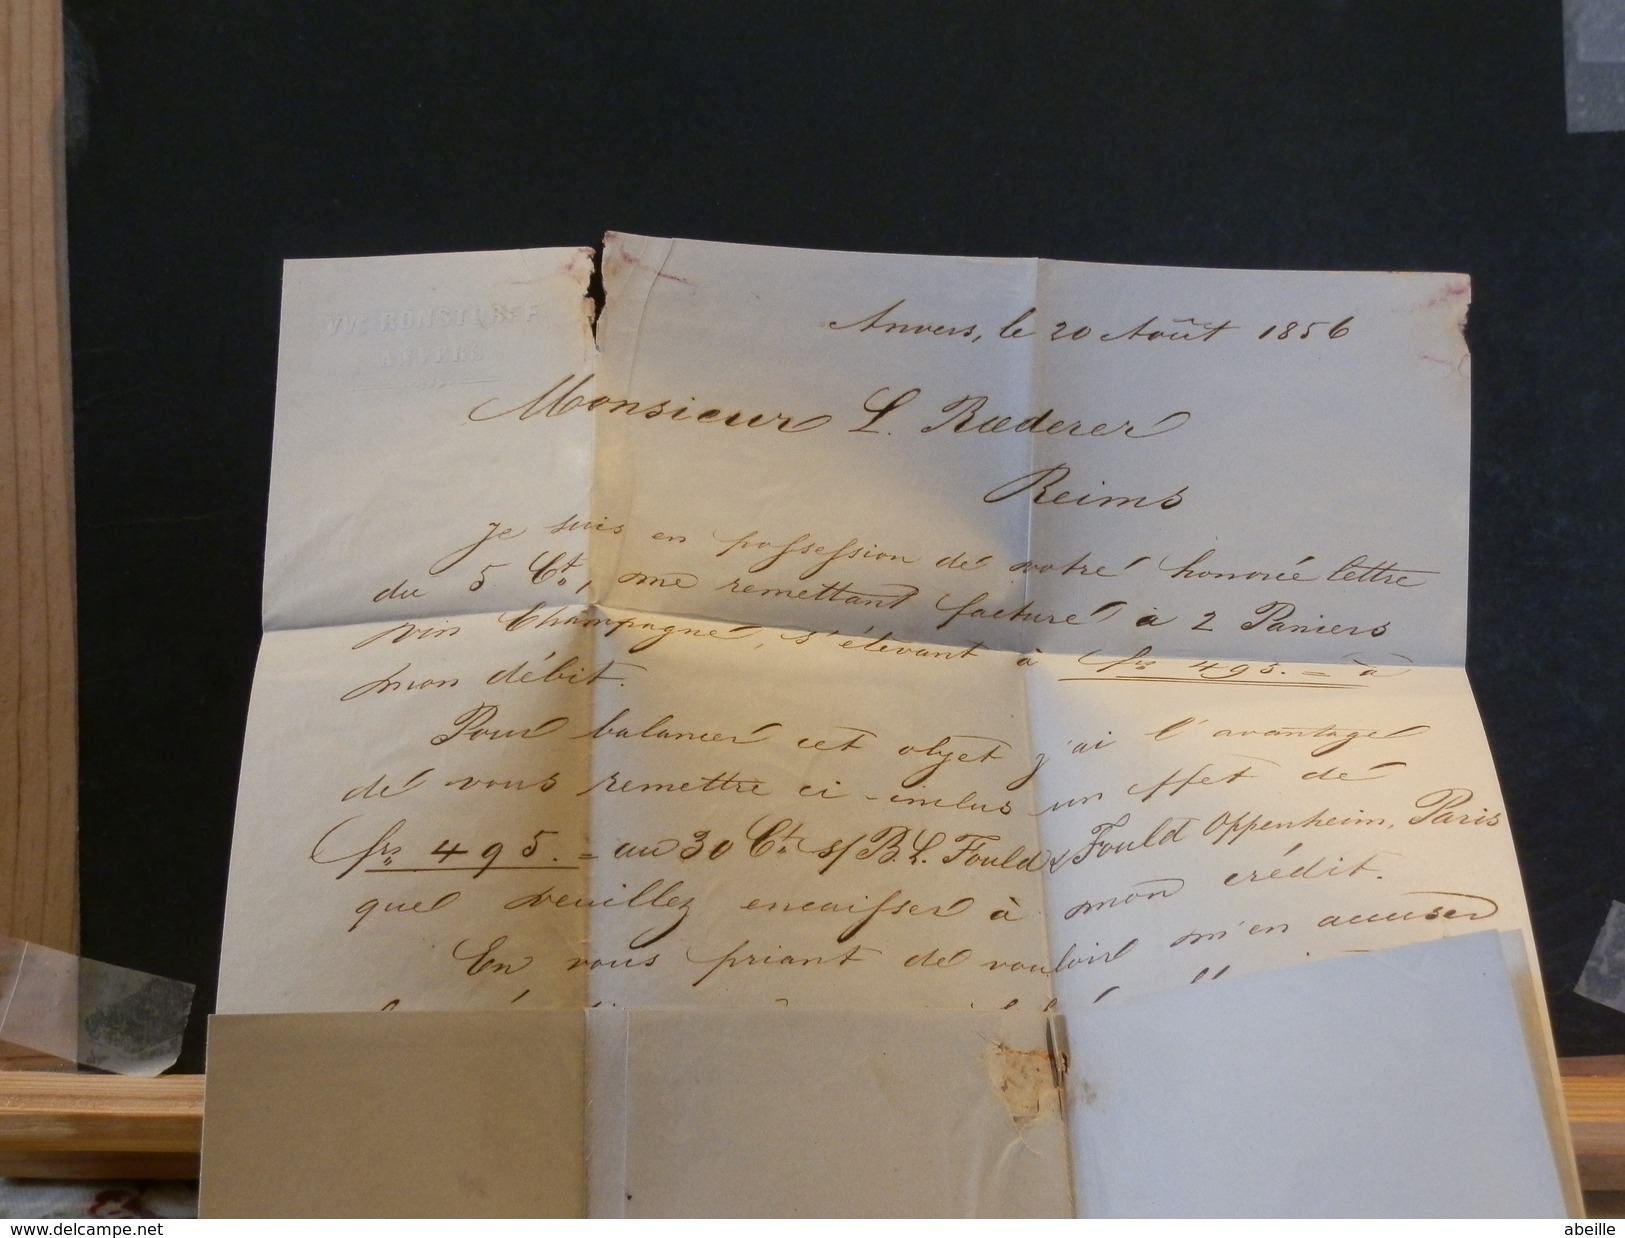 ANVERS
Anvers, le 20 Août 1856
Monsieur L. Rœderer
Reims
Je suis en possession de votre honorée lettre
du 5 Ct, me remettant facture à 2 Paniers
vin Champagne, s'élevant à frs 495. = à
mon débit.
Pour balancer cet objet j'ai l'avantage
de vous remettre ci-inclus un effet de
frs 495. = au 30 Ct s/ B. L. Fould & Fould Oppenheim, Paris
que veuillez encaisser à mon crédit.
En vous priant de vouloir m'en accuser
www.delcampe.net
abeille